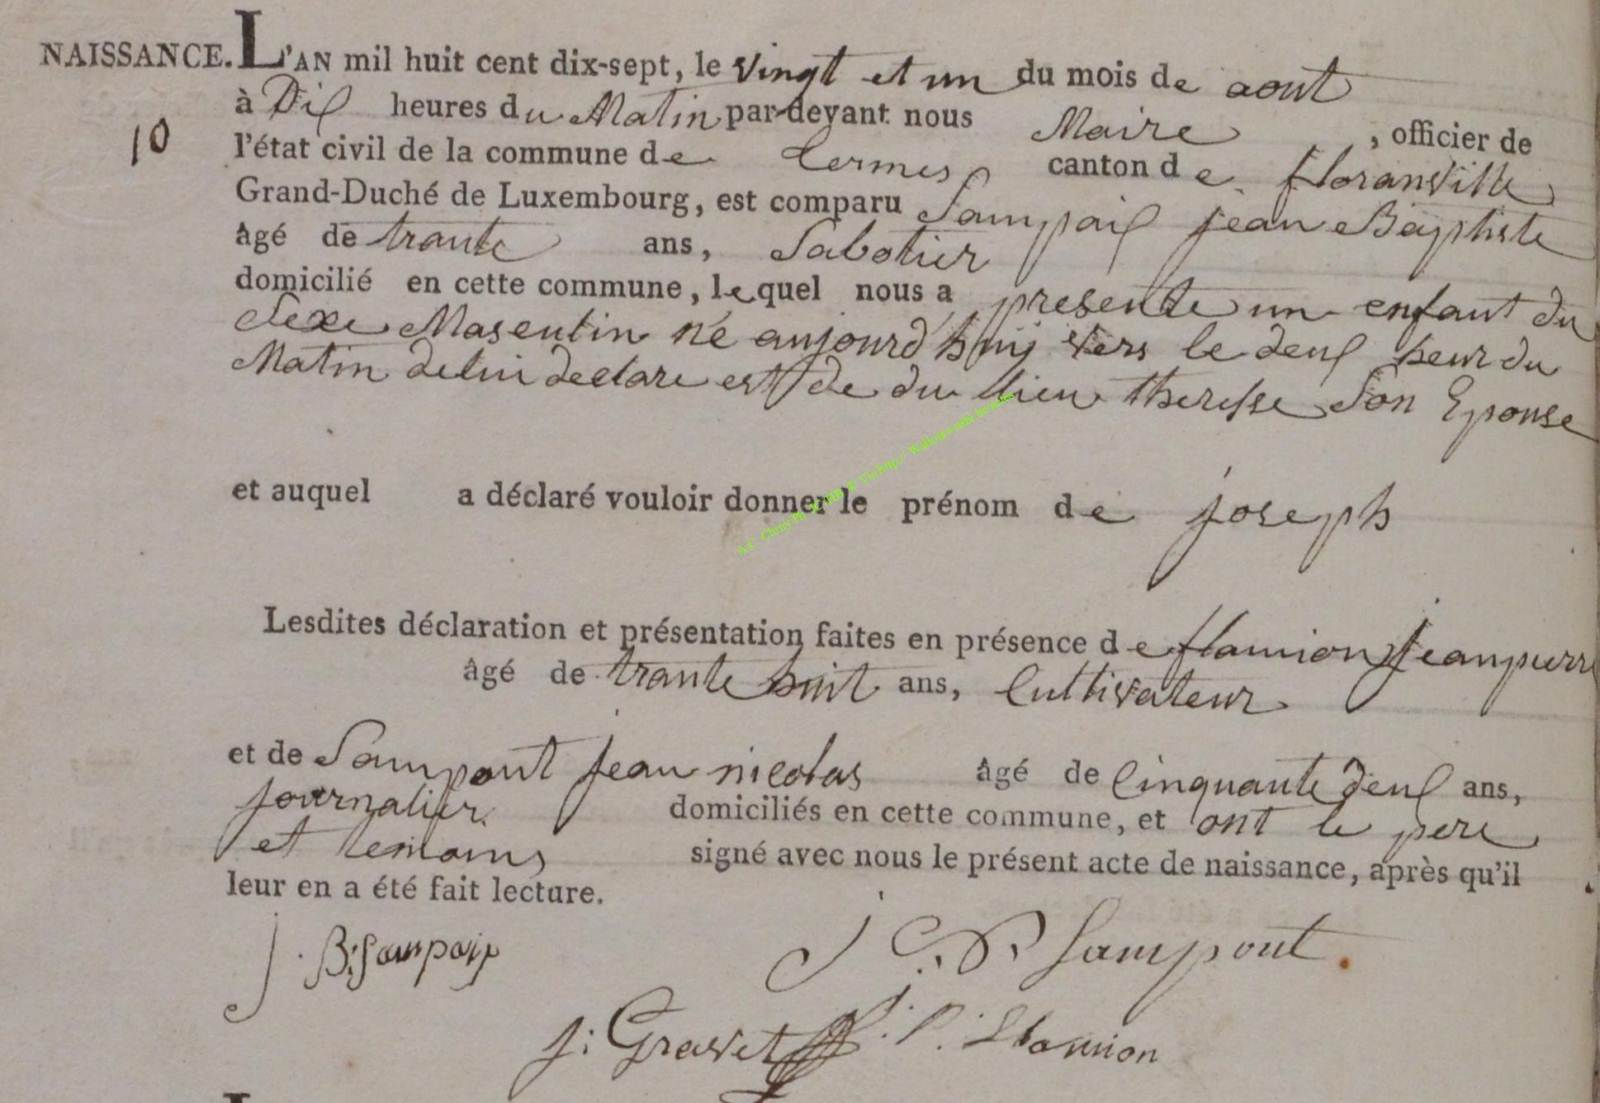 NAISSANCE. L'AN mil huit cent dix-sept, le vingt et un du mois de aout
10
à Dix heures du Matin par-devant nous Maire, officier de
l'état civil de la commune de termes canton de floranville
Grand-Duché de Luxembourg, est comparu Sampaix jean Baptiste
âgé de trante ans, Sabotier
domicilié en cette commune, lequel nous a presente un enfant du
Sexe Masculin né aujourd'huij vers le deux heur du
Matin de lui declare et de du lieu theresse Son Epouse
et auquel a déclaré vouloir donner le prénom de joseph
Lesdites déclaration et présentation faites en présence de flamion jeanpierre
âgé de trante huit ans, Cultivateur
et de Sampont jean nicolas âgé de Cinquante deux ans,
journalier domiciliés en cette commune, et ont le pere
et temoins signé avec nous le présent acte de naissance, après qu'il
leur en a été fait lecture.
J. B. Sampaix Sampont.
j: Gravet J. P. flamion